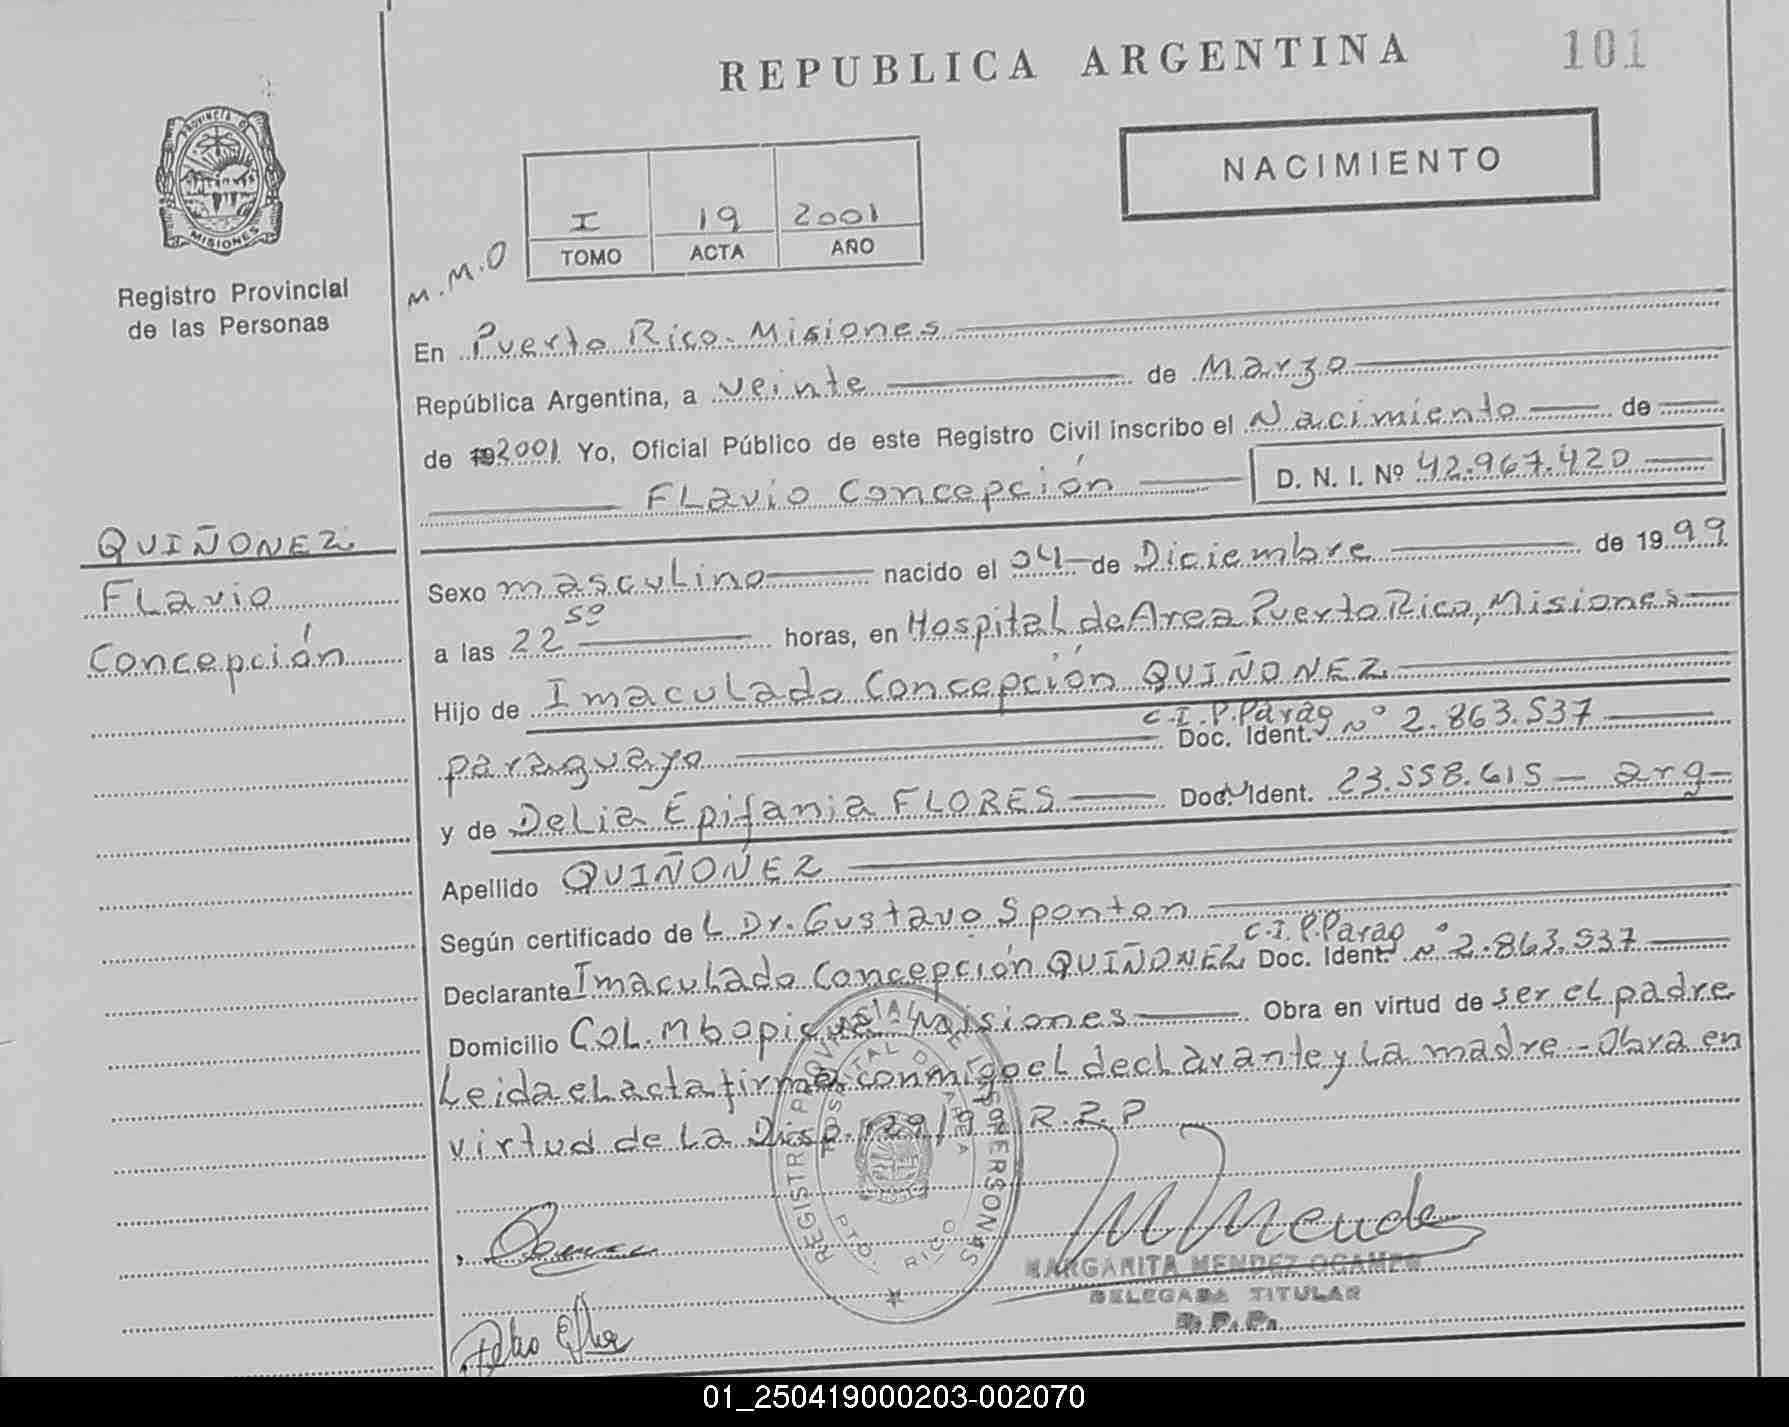 REPUBLICA ARGENTINA
101
NACIMIENTO
PROVINCIA DE
MISIONES
Registro Provincial
de las Personas
I 19 2001
TOMO ACTA AÑO
M.M.O
En Puerto Rico - Misiones
República Argentina, a veinte de Marzo
de 192001 Yo, Oficial Público de este Registro Civil inscribo el Nacimiento de
FLavio Concepción D. N. I. Nº 42.967.420
QUIÑONEZ
FLavio
Concepción
Sexo mascuLino nacido el 04 de Diciembre de 1999
a las 22 50 horas, en HospitaL de Area Puerto Rico, Misiones
Hijo de Imaculado Concepción QUIÑONEZ
paraguayo Doc. Ident. C.I.P.Parag Nº 2.863.537
y de DeLia Epifania FLORES Doc. Ident. 23.558.615 - arg-
Apellido QUIÑONEZ
Según certificado de L Dr. Gustavo Sponton
Declarante Imaculado Concepción QUIÑONEZ Doc. Ident. C.I.P.Parag Nº 2.863.537
Domicilio COL. Mbopicua - Misiones Obra en virtud de ser eL padre
Leida eL acta firma conmigo eL decLarante y La madre - Obra en
virtud de La Disp. 129/99 R.P.P
REGISTRO PROVINCIAL DE LAS PERSONAS
HOSPITAL DE AREA
PTO. RICO
M Mendez
MARGARITA MENDEZ OCAMPO
DELEGADA TITULAR
R.P.P.
01_250419000203-002070